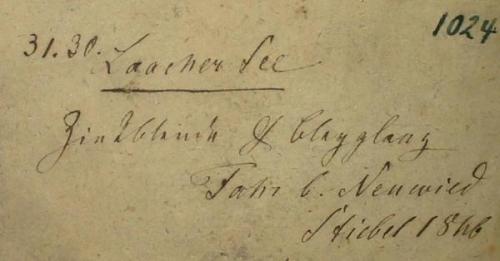 1024
31.30. Laacher See
Zinkblende & Bleyglanz
Fahr b. Neuwied
Stiebel 1846